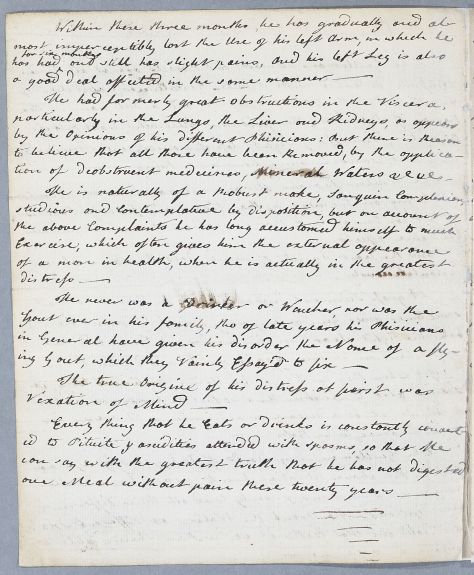 Within these three months he has gradually and al-
most imperceptibly lost the Use of his left Arm, in which he
for six months
has had and still has slight pains, and his left Leg is also
a good deal affected in the same manner —
He had formerly great obstructions in the Viscera,
particularly in the Lungs, the Liver and Kidneys, as appears
by the Opinions of his different Phisicians; but there is Reason
to believe that all those have been Removed, by the applica-
tion of Deobstruent medicines, Mineral Waters &c &c —
He is naturally of a Robust make, Sanguin Complexion,
studious and Contemplative by disposition, but on account of
the above Complaints he has long accustomed himself to much
Exercise, which often gives him the external appearance
of a man in health, when he is actually in the greatest
distress —
He never was a Drinker or Wencher, nor was the
Gout ever in his family, tho of late years his Phisicians
in General have given his disorder the Name of a fly-
ing Gout, which they Vainly Essay'd to fix —
The true Origine of his distress at first was
Vexation of Mind —
Every thing that he Eats or Drinks is constantly convert
ed to Pituite & acidities attended with spasms, so that He
can say with the greatest truth that he has not digested
one Meal without pain these twenty years —